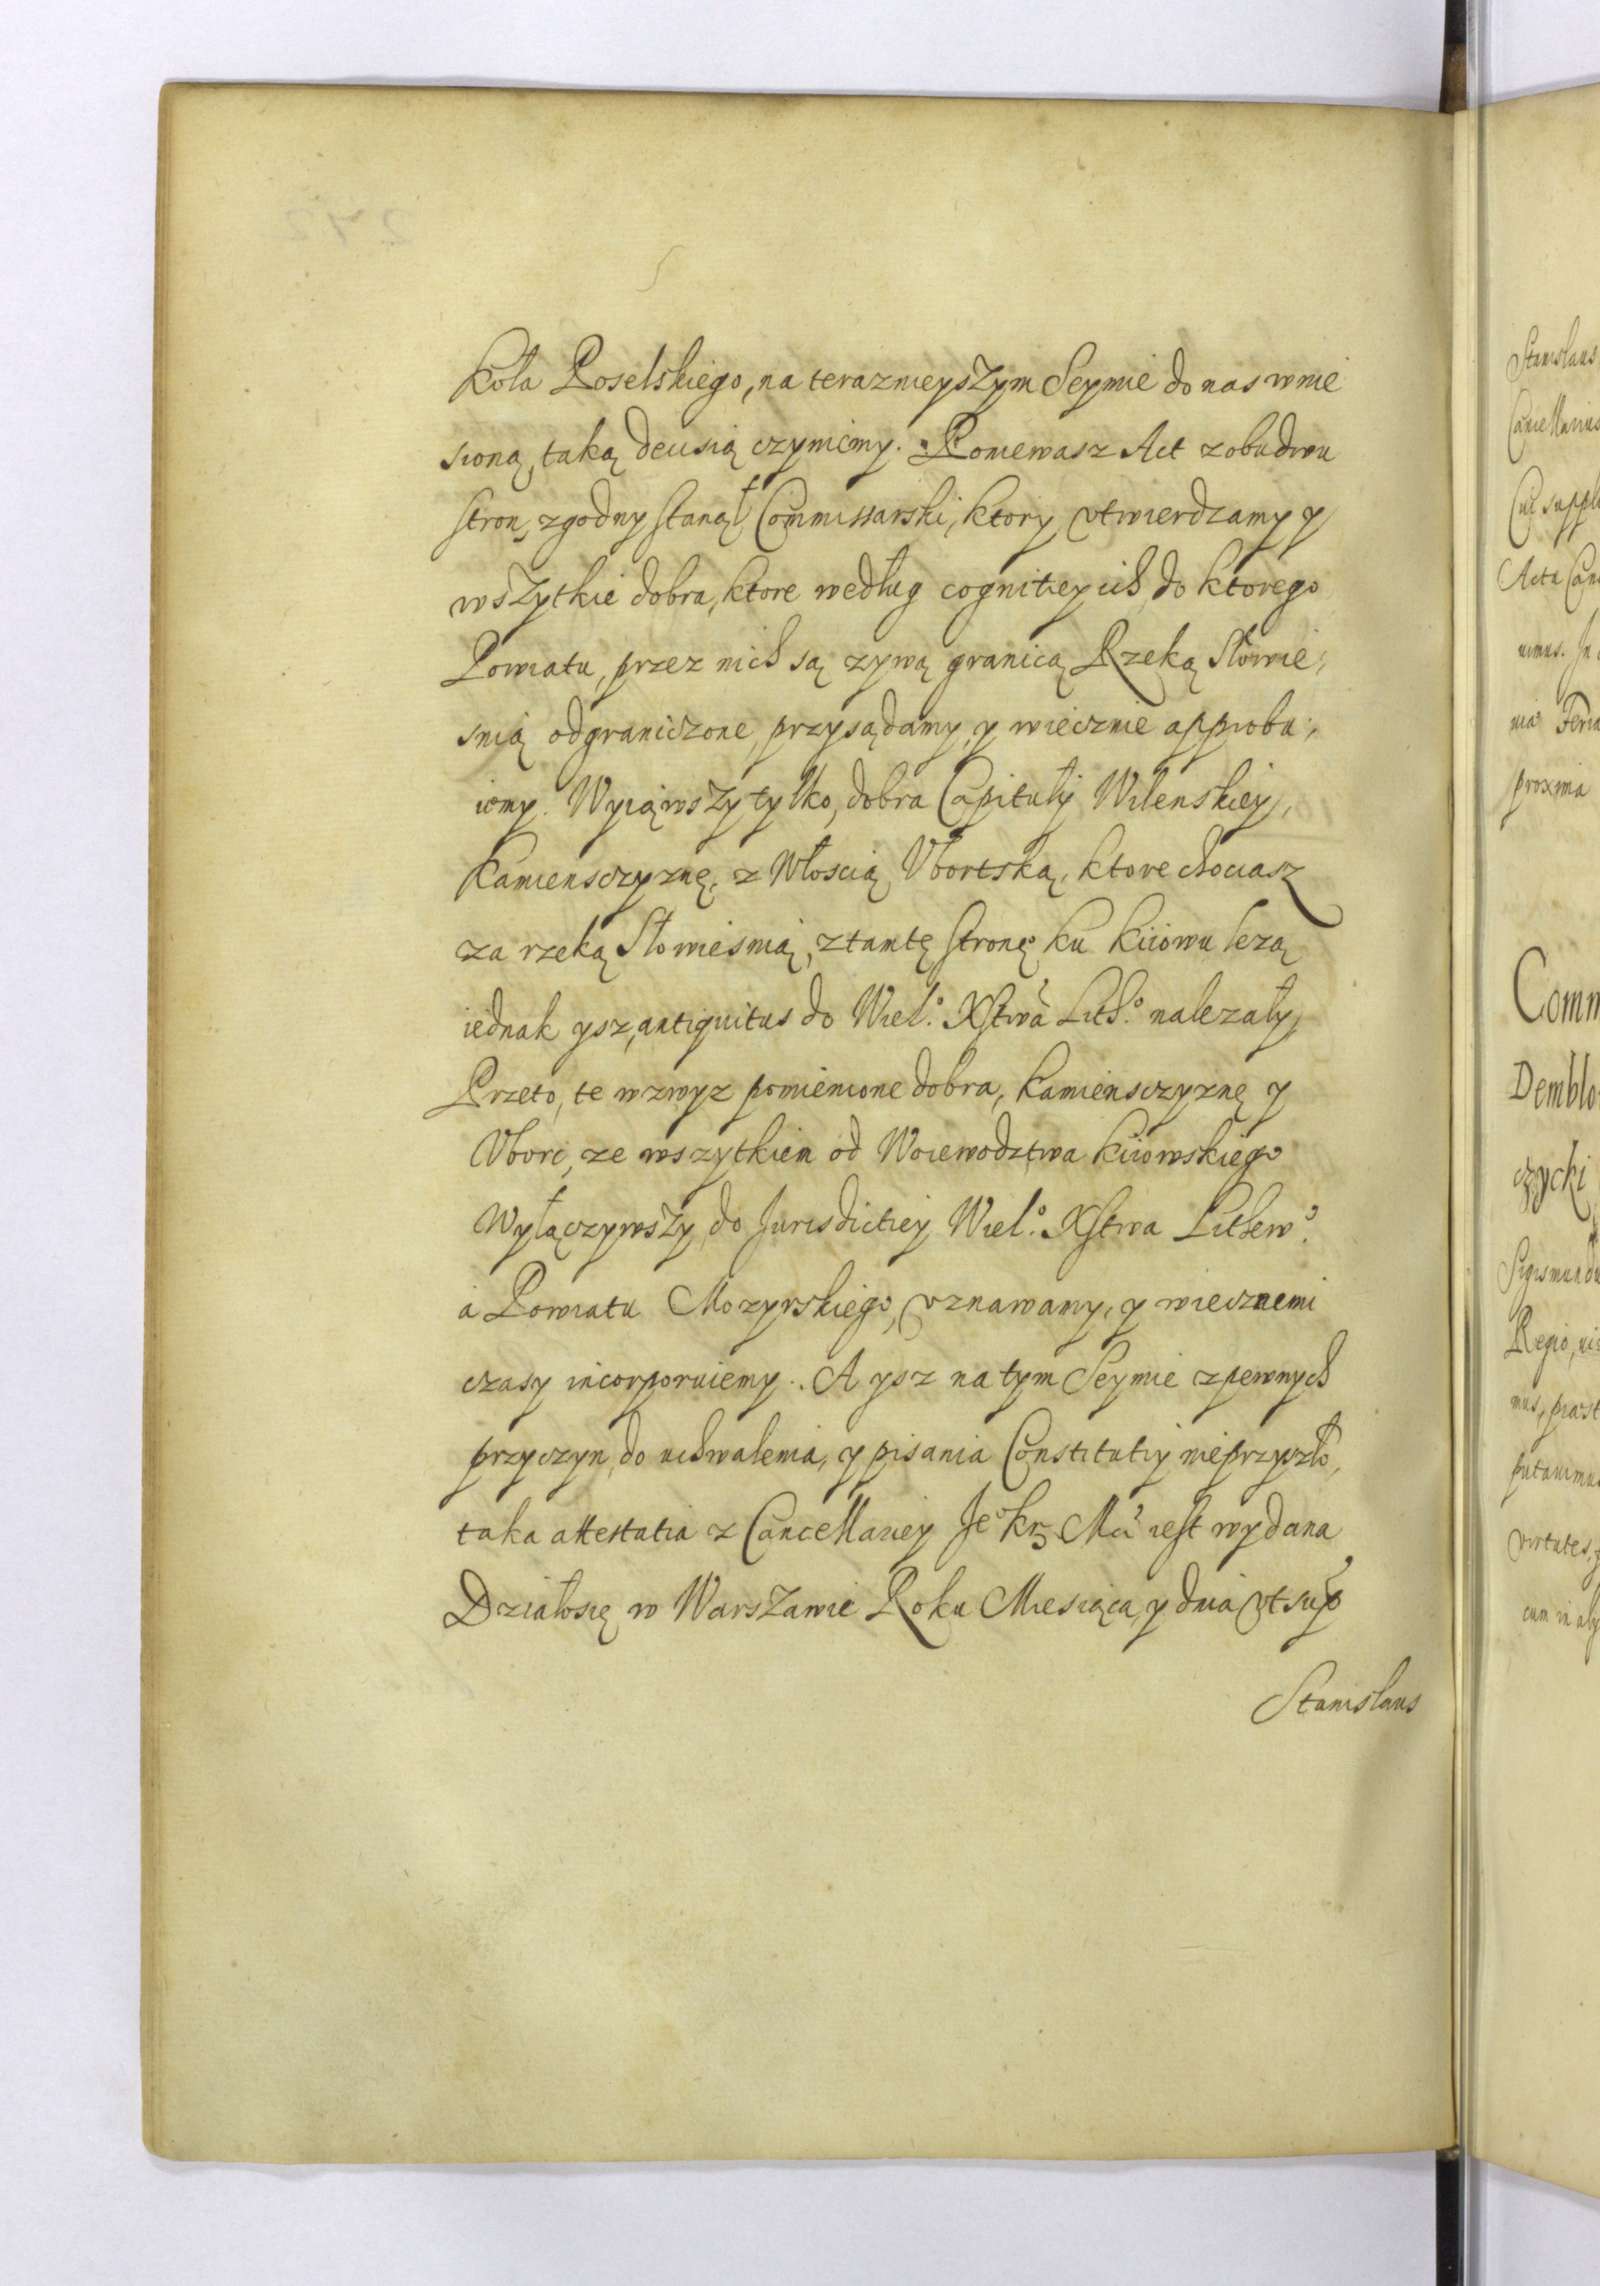 Koła Poselskiego, na teraznieyszym Seymie do nas wnie
sioną, taką decisią czynimy. Poniewasz Act z obudwu
stron, zgodny stanął Commissarski, ktory vtwierdzamy y
wszytkie dobra, ktore według cognitiey ich, do ktorego
Powiatu, przez nich są zywą granicą Rzeką Słowie,
snią odgraniczone, przysądamy, y wiecznie approbu,
iemy. Wyiąwszy tylko, dobra Capituły Wilenskiey,
Kamiensczyznę, z Włoscią Vbortską, ktore chociasz
za rzeką Słowiesnią, z tamtę stronę ku Kiiowu lezą
iednak ysz, antiquitus do Wiel.º Xstwa Lith.º nalezały,
Przeto, te wzwyz pomienione dobra, Kamiensczyznę y
Vborc, ze wszytkiem od Woiewodztwa Kiiowskiego
Wyłączywszy, do Jurisdictiey Wiel.º Xstwa Lithew.º
a Powiatu Mozyrskiego, vznawamy, y wiecznemi
czasy incorporuiemy. A ysz na tym Seymie z pewnych
przyczyn, do uchwalenia, y pisania Constitutiy nieprzyszło,
taka attestatia z Cancellariey Jeº Kr Mci iest wydana
Działosię w Warszawie Roku Miesiąca, y dnia vt sup
Stanislaus
Stanislaus
Cancellarius
Cui suppli
Acta Canc
uimus. In
nia Feria
proxima
Comm
Demblo
czycki
Sigismundu
Regio,
mus, præst
putauimus
virtutes,
cum in aly